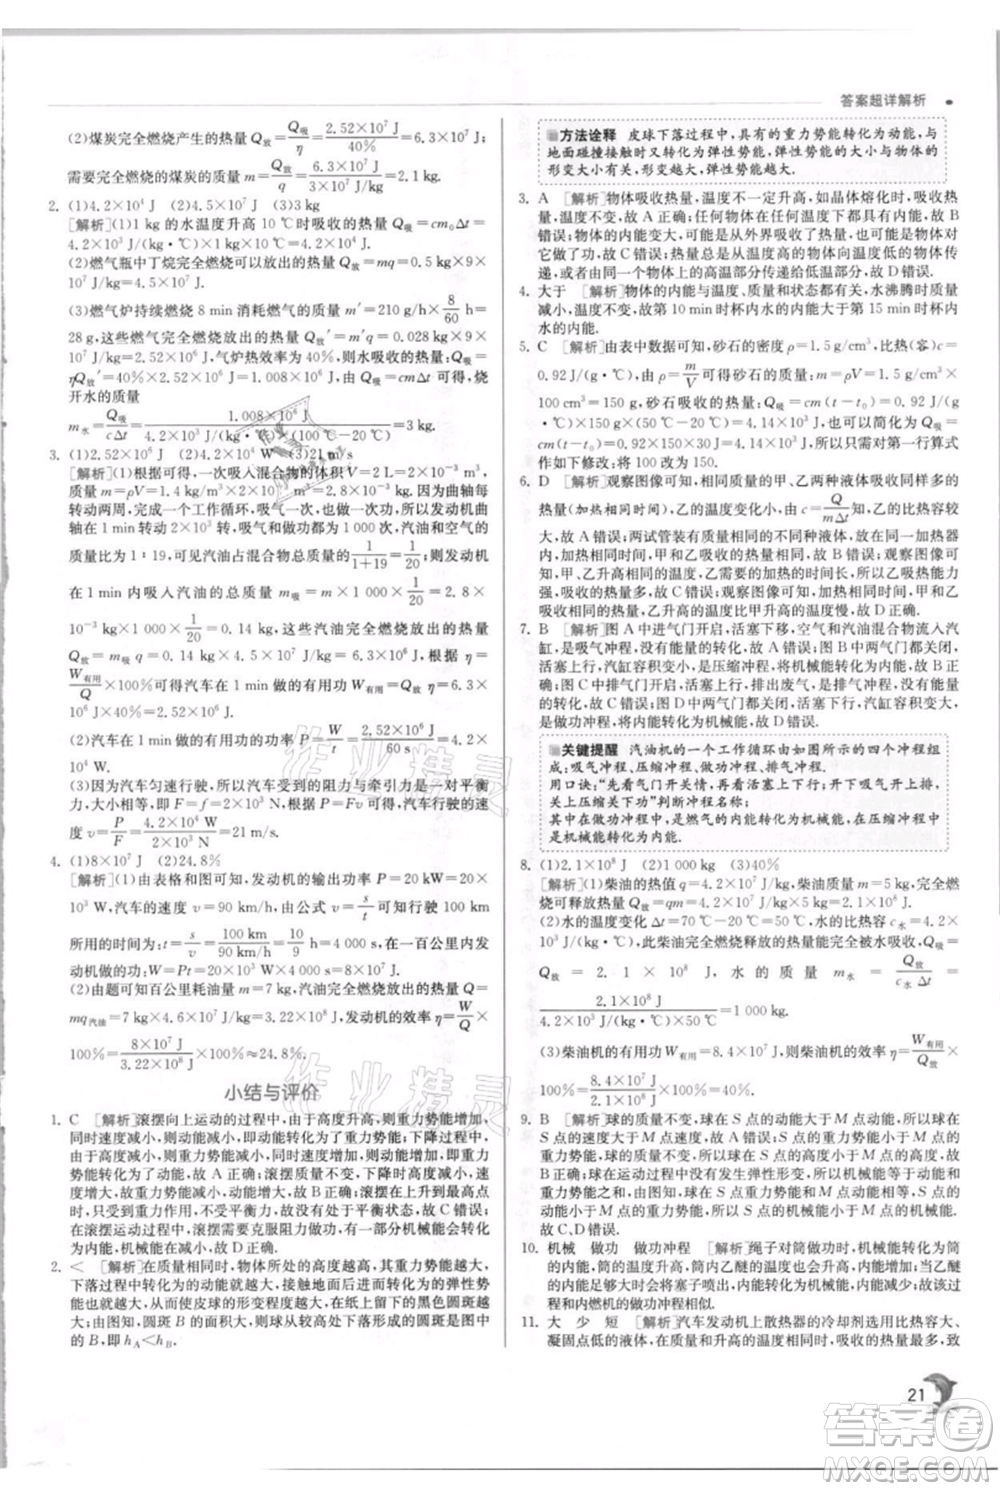 答案超详解析
(2)煤炭完全燃烧产生的热量 Q放=Q吸/η=2.52×10⁷ J/40%=6.3×10⁷ J,
需要完全燃烧的煤炭的质量 m=Q放/q=6.3×10⁷ J/(3×10⁷ J/kg)=2.1 kg。
2. (1)4.2×10⁴ J (2)2.52×10⁷ J (3)3 kg
[解析](1)1 kg 的水温度升高 10 ℃时吸收的热量 Q吸=cm₀Δt=
4.2×10³ J/(kg·℃)×1 kg×10 ℃=4.2×10⁴ J。
(2)燃气瓶中丁烷完全燃烧可以放出的热量 Q放=mq=0.5 kg×9×
10⁷ J/kg=4.5×10⁷ J。
(3)燃气炉持续燃烧 8 min 消耗燃气的质量 m′=210 g/h×8/60 h=
28 g,这些燃气完全燃烧放出的热量 Q放′=m′q=0.028 kg×9×
10⁷ J/kg=2.52×10⁶ J,气炉热效率为 40%,则水吸收的热量 Q吸=
ηQ放′=40%×2.52×10⁶ J=1.008×10⁶ J,由 Q吸=cmΔt 可得,烧
开水的质量
m水=Q吸/cΔt=1.008×10⁶ J/(4.2×10³ J/(kg·℃)×(100 ℃-20 ℃))=3 kg。
3. (1)2.52×10⁶ J (2)4.2×10⁴ W (3)21 m/s
[解析](1)根据题意可得,一次吸入混合物的体积 V=2 L=2×10⁻³ m³,
质量 m=ρV=1.4 kg/m³×2×10⁻³ m³=2.8×10⁻³ kg;因曲轴每
转动两周,完成一个工作循环,吸气一次,做功一次,所以发动机曲
轴在 1 min 转动 2×10³ r,吸气和做功各 1 000 次,汽油和空气的
质量比为 1∶19,可见汽油占混合物总质量的 1/(1+19)=1/20,则发动机
在 1 min 内吸入汽油的总质量 m吸=m×1 000×1/20=2.8×
10⁻³ kg×1 000×1/20=0.14 kg,这些汽油完全燃烧放出的热量
Q放=m吸q=0.14 kg×4.5×10⁷ J/kg=6.3×10⁶ J,根据 η=
W有用/Q×100%可得汽车在 1 min 做的有用功 W有用=Q放η=6.3×
10⁶ J×40%=2.52×10⁶ J。
(2)汽车在 1 min 做的有用功的功率 P=W/t=2.52×10⁶ J/60 s=4.2×
10⁴ W。
(3)因为汽车匀速行驶,所以汽车受到的阻力与牵引力是一对平衡
力,大小相等,即 F=f=2×10³ N,根据 P=Fv 可得,汽车行驶的
速度 v=P/F=4.2×10⁴ W/2×10³ N=21 m/s。
4. (1)8×10⁷ J (2)24.8%
[解析](1)由表格和图可知,发动机的输出功率 P=20 kW=2×
10⁴ W,汽车的速度 v=90 km/h,根据 v=s/t 可知行驶 100 km
所用的时间为 t=s/v=100 km/90 km/h=10/9 h=4 000 s,在百公里内发
动机做的功 W=Pt=2×10⁴ W×4 000 s=8×10⁷ J。
(2)由题可知百公里耗油量 m=7 kg,汽油完全燃烧放出的热量 Q=
mq汽油=7 kg×4.6×10⁷ J/kg=3.22×10⁸ J,发动机的效率 η=W/Q×
100%=8×10⁷ J/3.22×10⁸ J×100%≈24.8%。
小结与评价
1. C [解析]滚摆向上运动的过程中,由于高度升高,则重力势能增加,
同时速度减小,则动能减小,即动能转化为重力势能;下降过程中,
由于高度减小,则重力势能减小,同时速度增加,则动能增加,即重力
势能转化为了动能,故 A 正确;滚摆阻力实验中,可明显看到高度
减小,故重力势能减小,故 B 正确;滚摆在上升到最高点
时,只受到重力作用,不受平衡力,故没有处于平衡状态,故 C 错误;
在滚摆运动过程中,需要克服阻力做功,有一部分机械能会转化
为内能,机械能在减小,故 D 正确。
2. < [解析]在质量相同时,物体所处的高度越高,其重力势能越大,
下落过程中转化为的动能就越大,接触地面后进而转化为弹性势能
也越大,所以使皮球的形变程度越大,在纸上留下的黑色圆斑面积
也就越大。由图可知,圆斑 B 的面积大,则球从较高处下落的是图中
的 B,即 hA<hB。
方法诠释 皮球下落过程中,具有的重力势能转化为动能,与
地面碰撞接触时又转化为弹性势能,弹性势能的大小与物体的
形变大小有关,形变越大,弹性势能越大。
3. A [解析]物体吸收热量,温度不一定升高,如晶体熔化时,吸收热
量,温度不变,故 A 正确;任何物体在任何温度下都有内能,故 B
错误;物体的内能变大,可能是从外界吸收了热量,也可能是外界对
它做了功,故 C 错误;热量由高温的物体向温度低的物体传递,不
能由低温物体上的高温部分传递给低温部分,故 D 错误。
4. 大于 [解析]物体的内能与温度、质量和状态都有关,水沸腾时质量
减小,温度不变,故第 10 min 时杯内水的内能大于第 15 min 时杯内
水的内能。
5. C [解析]由表中数据可知,砂石的密度 ρ=1.5 g/cm³,比热(容) c=
0.92 J/(g·℃),由 ρ=m/V 可得砂石的质量 m=ρV=1.5 g/cm³×
100 cm³=150 g,砂石吸收的热量 Q吸=cm(t-t₀)=0.92 J/(g·
℃)×150 g×(50 ℃-20 ℃)=4 140 J,分步计算的第二行算式为 Q吸=
cm(t-t₀)=0.92×150×30=4 140 J,所以应对第一行算式
作如下修改:将 100 改为 150。
6. D [解析]观察图像可知,相同质量的甲、乙两种液体吸收同样多的
热量(加热相同时间),甲的温度变化小,由 c=Q/mΔt可知,乙的比热容
小,故 A 错误;两试管装有质量相同的不同液体,用相同的酒精灯加
热相同的时间,吸收的热量相同,故 B 错误;观察图像可
知,甲、乙升高相同的温度,乙需要的加热的时间短,所以乙吸收的热
量少,故 C 错误;观察图像可知,加热相同的时间(即吸收
相同的热量),乙升高的温度比甲升高的温度多,故 D 正确。
7. B [解析]图 A 中进气门开启,活塞下移,空气和汽油混合物流入汽
缸,是吸气冲程,没有能量的转化,故 A 错误;图 B 中两气门都关闭,
活塞上行,汽缸容积变小,是压缩冲程,将机械能转化为内能,故 B
正确;图 C 中排气门开启,活塞上移,是排气冲程,没有能量的转化,
故 C 错误;图 D 中两气门都关闭,活塞下移,汽缸容积变大,是做功
冲程,将内能转化为机械能,故 D 错误。
关键提醒 汽油机的一个工作循环由如图所示的四个冲程组
成:吸气冲程、压缩冲程、做功冲程、排气冲程。
用口诀:“先看气门开关情况,再看活塞上下,开下吸气开上排,
关上压缩关下功”判断冲程名称;
其中在做功冲程,是燃气的内能转化为机械能,在压缩冲程中
是机械能转化为内能。
8. (1)2.1×10⁸ J (2)1 000 kg (3)40%
[解析](1)柴油的热值 q=4.2×10⁷ J/kg,质量 m=5 kg,完全燃
烧可释放热量 Q放=qm=4.2×10⁷ J/kg×5 kg=2.1×10⁸ J。
(2)水的温度变化 Δt=70 ℃-20 ℃=50 ℃,水的比热容 c水=4.2×
10³ J/(kg·℃),此柴油完全燃烧释放的热量能完全被水吸收,Q吸=
Q放=2.1×10⁸ J,水的质量 m水=Q放/c水Δt=
2.1×10⁸ J/(4.2×10³ J/(kg·℃)×50 ℃)=1 000 kg。
(3)柴油机的有用功 W有用=8.4×10⁷ J,柴油机的效率 η=W有用/Q放×
100%=8.4×10⁷ J/2.1×10⁸ J×100%=40%。
9. B [解析]球的质量不变,球在 S 点的动能大于 M 点动能,所以球
在 S 点的速度大于 M 点的速度,故 A 错误;球在 S 点的动能大于
M 点的动能,球在 S 点的重力势能大于 M 点的重力势能,
故 B 正确;球在运动过程中没有发生弹性形变,不具有弹性势能,
故 C 错误;由图知,球在 S 点的高度大于 M 点的高度,球的质量
不变,则球在 S 点的重力势能大于 M 点的重力势能,
故 C、D 错误。
10. 机械 做功 做功冲程 [解析]绳子对筒做功时,机械能转化为内
能,使筒内乙醚的温度升高,内能变大;当乙醚
沸腾后产生的蒸汽将塞子喷出,内能转化为机械能,内能减少;故该过
程和内燃机的做功冲程相似。
11. 大 少 短 [解析]汽车发动机上散热器的冷却剂选用比热容大、
凝固点低的液体,使用质量相同的液体升高相同温度时,吸收的热量多,
21
作业精灵
答案圈
MXQE.COM